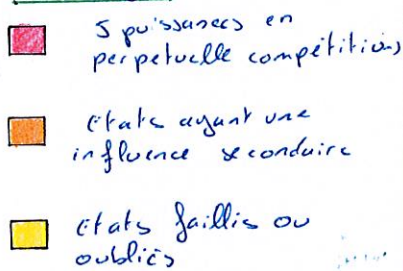 5 puissances en
perpetuelle compétition
états ayant une
influence secondaire
états faillis ou
oubliés